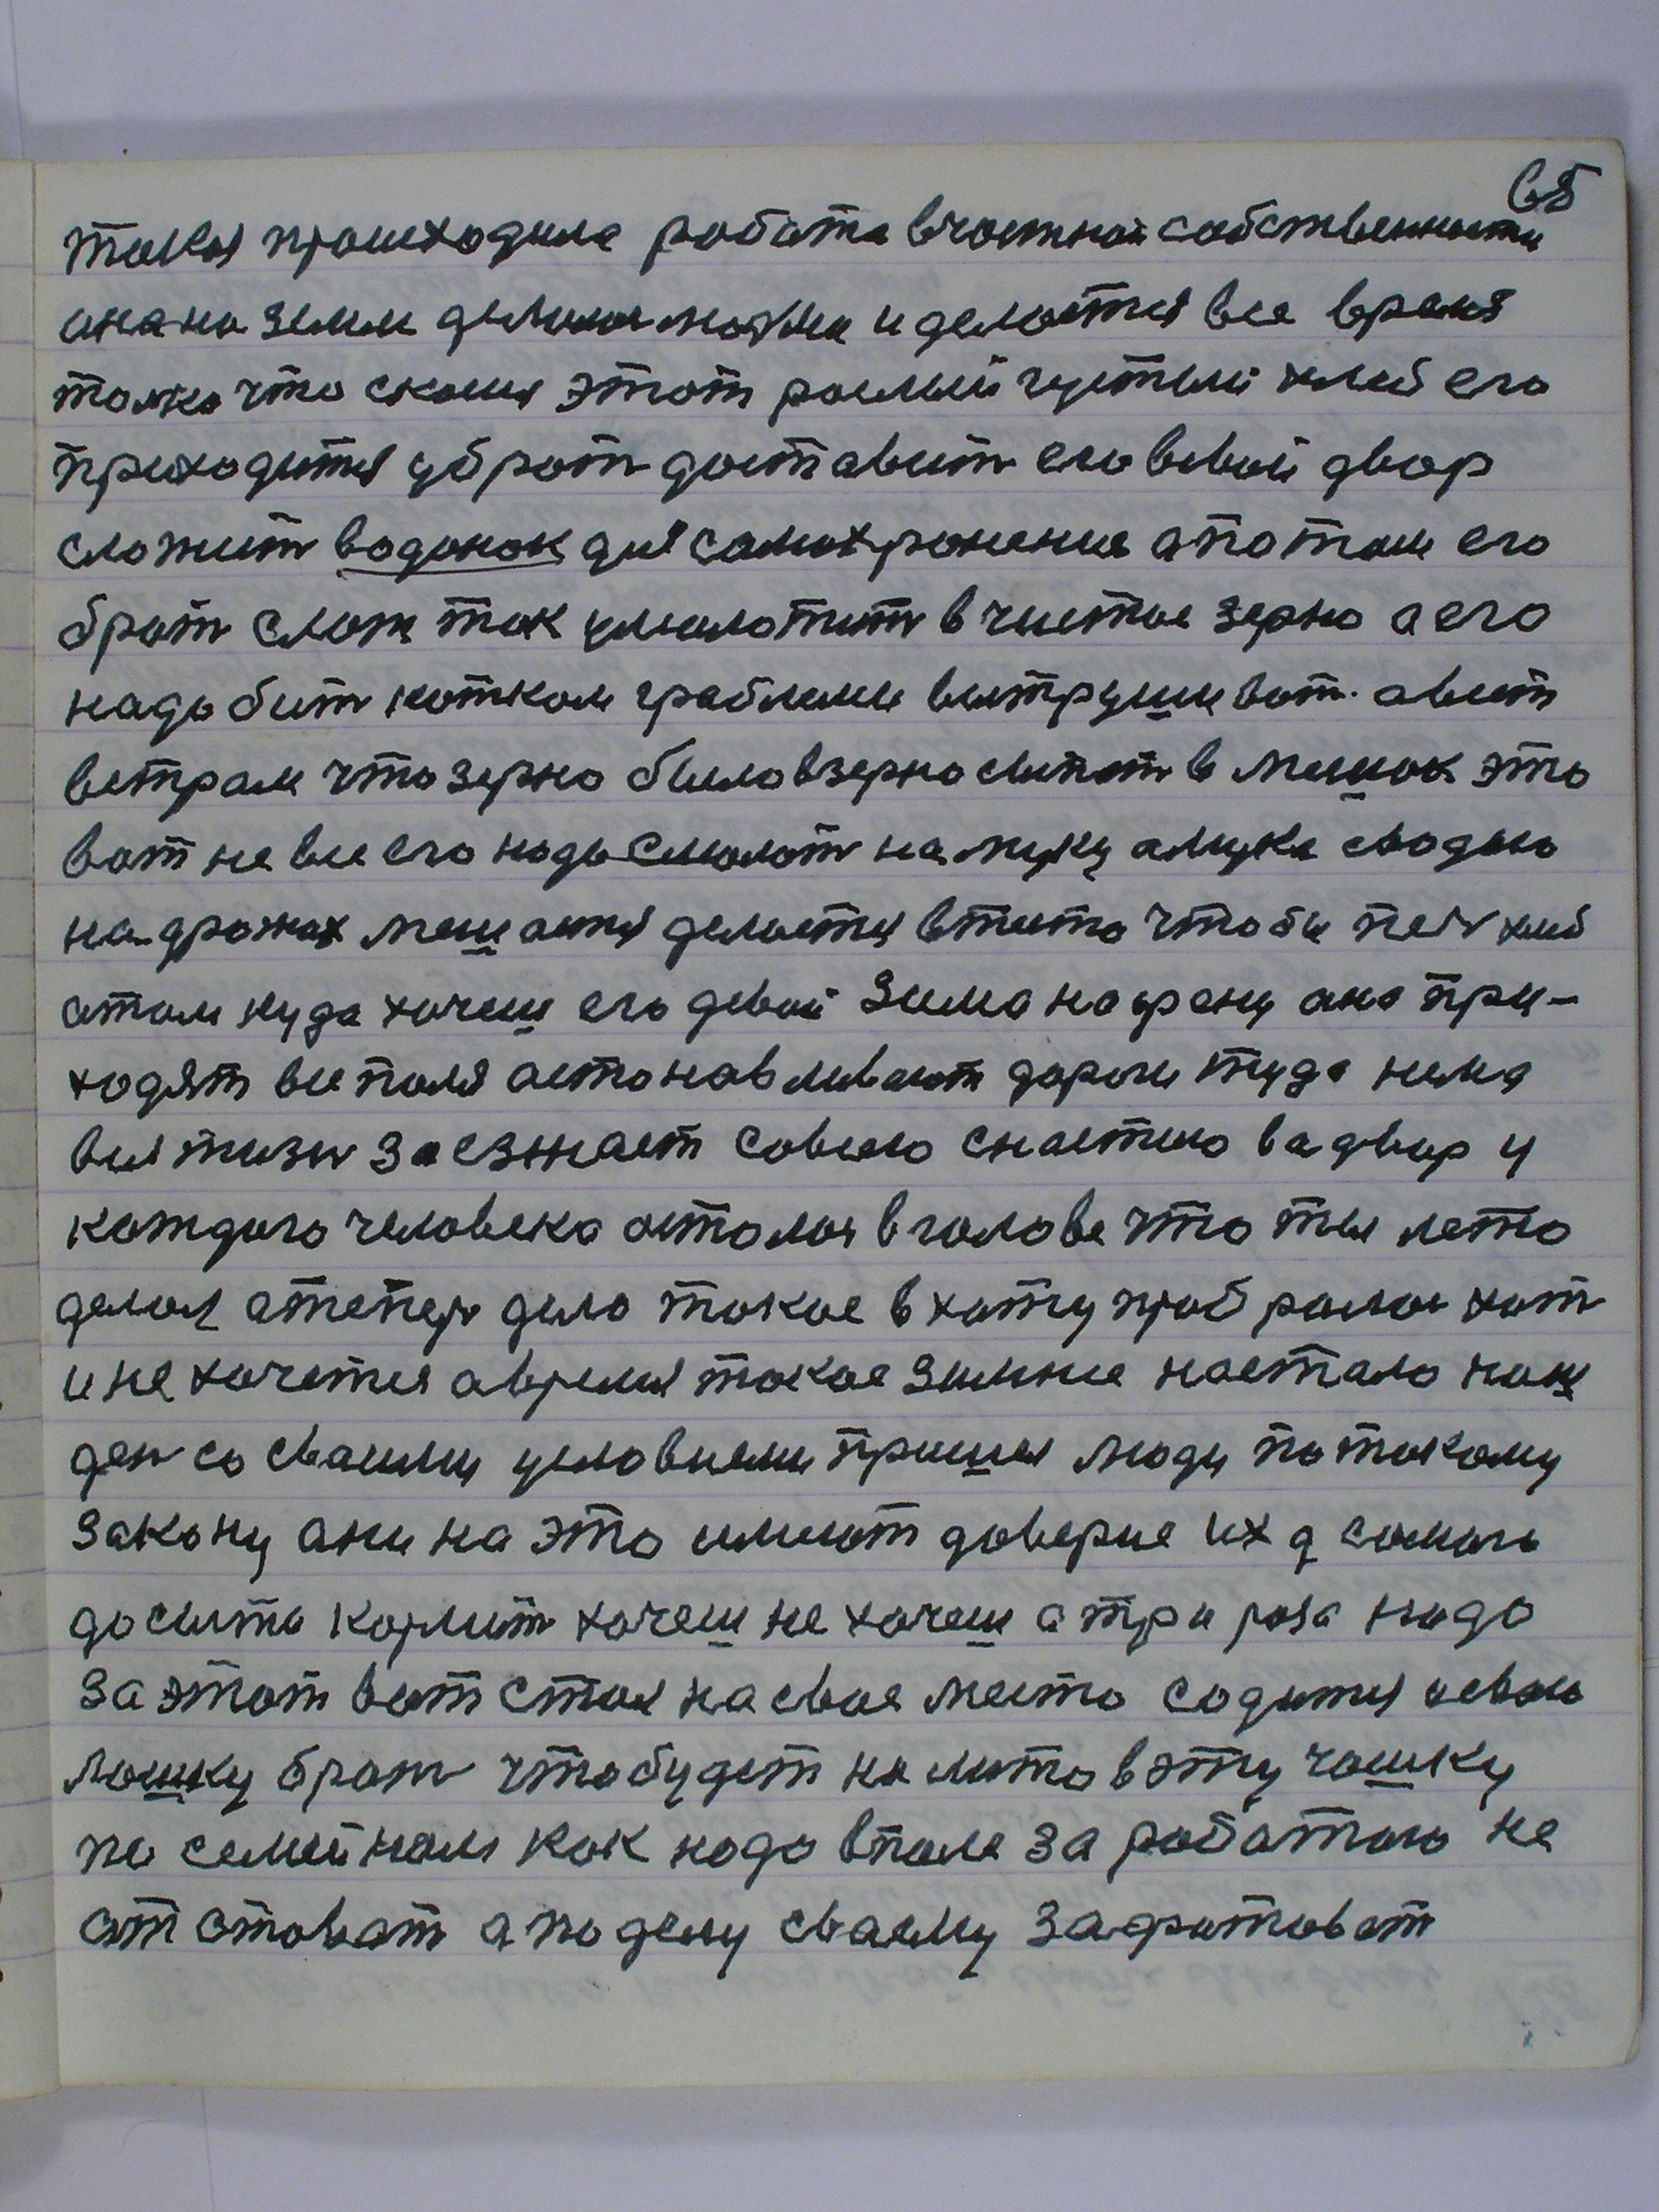 65
такая проиходила работа вчастнай собственности
ана на земли делалас людми и делается все время
толко что скошен этот рослый густый хлеб его
приходится убрат доставит его всвой двор
сложит водонок для самохранения а потом его
брат слож ток умолотит в чистое зерно а его
надо бит котком граблями вытрушиват. авеит
ветрам что зерно было взерно сыпат в мешок это
вот не все его надо смолот на муку а мука сводою
на дрожах мешается делается втесто чтобы печ хлеб
а там куда хочеш его девай Зима на фрону ана при-
ходят все поля астонавливают дароги туда нема
вся жизн заезжает совсею снастию ва двор у
каждаго человека асталос вголове что ты лето
делал а тепер дело такое в хату прабралос хот
и не хочется а время такое зимние настало наш
ден со сваими условиями пришел люди по такому
закону ани на это имеют доверие их д самого
досыта кормит хочеш не хочеш а три раза надо
за этот вот стол на свое место садится исваю
лошку брат что будет налито вэту чашку
по семейнам как надо вполе за работаю не
атстават а по делу сваему зафатоват